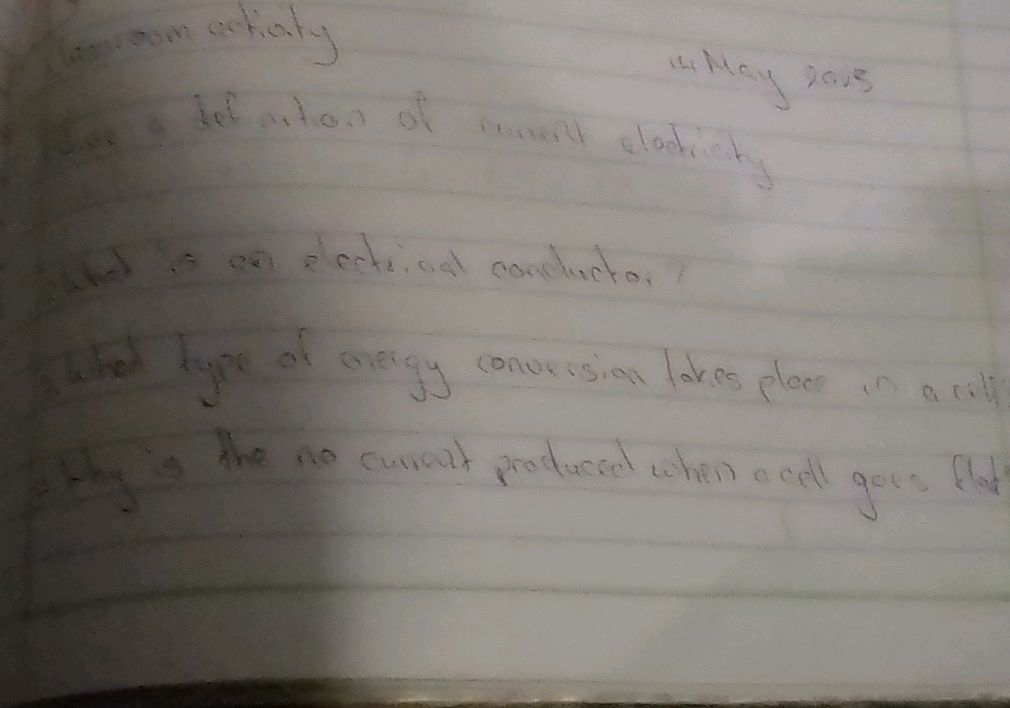 Classroom activity
14 May 2025
a definition of current electricity
What is an electrical conductor?
What type of energy conversion takes place in a cell
Why is the no current produced when a cell goes flat